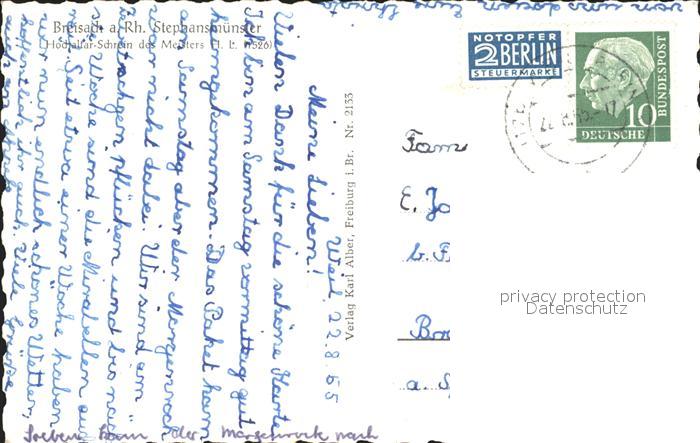 Breisach a. Rh. Stephansmünster
(Hochaltar-Schrein des Meisters H. L. 1526)
Verlag Karl Alber, Freiburg i. Br. Nr. 2133
NOTOPFER
2 BERLIN
STEUERMARKE
10
DEUTSCHE
BUNDESPOST
Weil, 22.8.55
Meine Lieben!
Vielen Dank für die schöne Karte
Ich bin am Samstag vormittag gut
heimgekommen. Das Paket kam
am Samstag aber der Morgenrock
war nicht dabei. Wir sind am
Zwetschgen pflücken und bis nächste
Woche sind die Mirabellen auch
reif. Seit etwa einer Woche haben
wir nun endlich schönes Wetter,
hoffentlich ihr auch. Viele Grüsse
Soeben kam der Morgenrock nach
Fam
E. Jo
b. F
Bre
a. S
privacy protection
Datenschutz